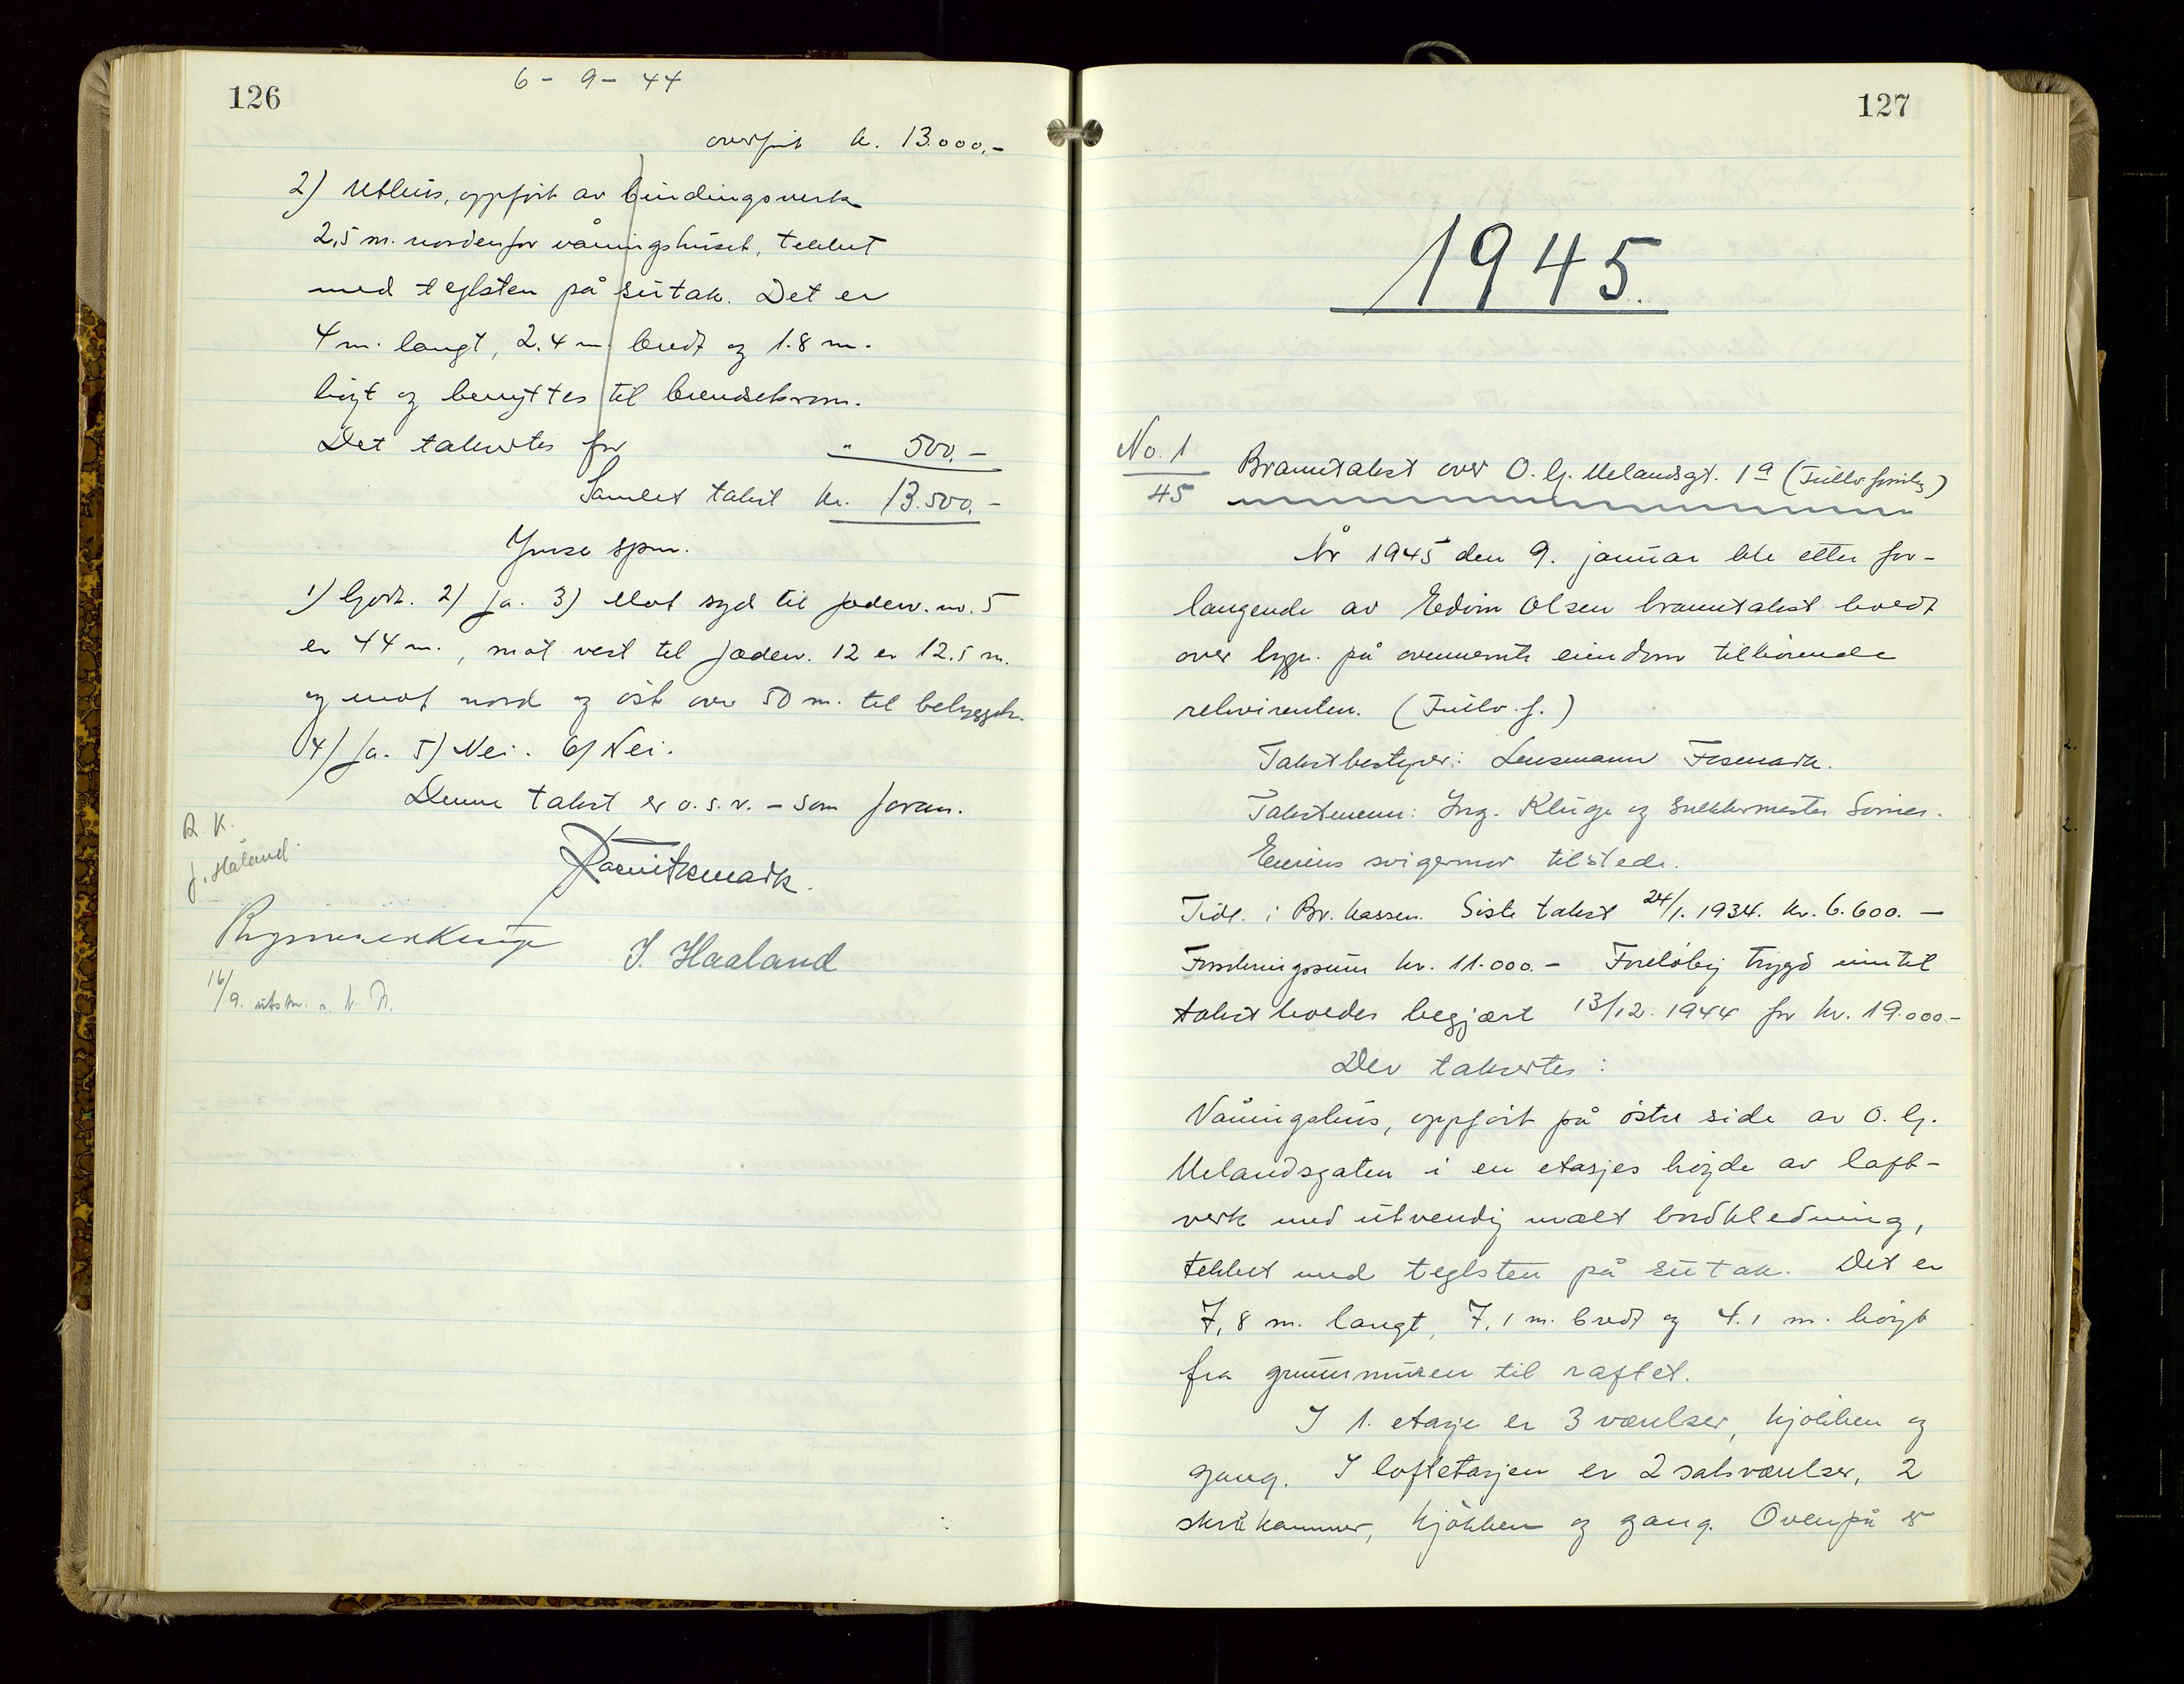 126
6 - 9 - 44
overfört kr. 13.000,-
2) Uthus, oppfört av bindingsverk
2,5 m. nordenfor våningshuset, tekket
med teglsten på sutak. Det er
4 m. langt, 2.4 m bredt og 1.8 m.
höyt og benyttes til brendselsrom.
Det takseres for " 500,-
Samlet takst kr. 13.500,-
Ymse spm.
1) Godt. 2) Ja. 3) Mot syd til Jaderv. nr. 5
er 44 m., mot vest til Jaderv. 12 er 12.5 m.
og mot nord og öst over 50 m. til bebyggelse.
4) Ja. 5) Nei. 6) Nei.
Denne takst er o.s.v. - som foran.
R. K.
J. Håland.
J. Haaland
16/9. utskr.
127
1945.
No. 1
45
Branntakst over O. G. Melandsgt. 1a (Tullv familie)
År 1945 den 9. januar ble etter for-
langende av Edvin Olsen branntakst holdt
over bygn. på ovennevnte eiendom tilhörende
rekvirenten. (Tullv. f.)
Takstbestyrer: Lensmann
Takstmenn: Ing. Kluge og snekkermester
svigermor tilstede.
Tidl. i Br. kassen. Siste takst 24/1. 1934. kr. 6.600.-
Forsikringssum kr. 11.000.- Forelöbig trygd inntil
takst holdes begjært 13/12. 1944 for kr. 19.000-
Der takseres:
Våningshus, oppfört på östre side av O. G.
Melandsgaten i en etasjes höyde av laft-
verk med utvendig malt bordkledning,
tekket med teglsten på sutak. Det er
7,8 m. langt, 7.1 m. bredt og 4.1 m. höyt
fra grunnmuren til raftet.
I 1. etasje er 3 værelser, kjökken og
gang. I loftetasjen er 2 salsværelser, 2
skråkammer, kjökken og gang. Ovenpå er